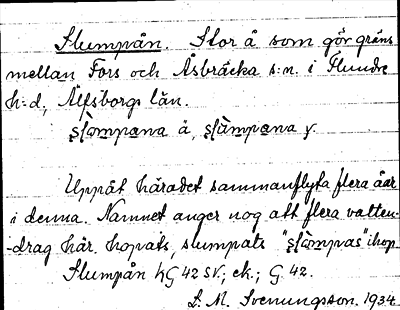 Slumpån. Stor å som gör gräns
mellan Fors och Åsbräcka s:n. i Flundre
h:d, Älfsborgs län.
sḷòmpana å, sḷùmpana y.
Uppåt häradet sammanflyta flera åar
i denna. Namnet anger nog att flera vatten-
-drag här hopats, slumpats "sḷòmpas" ihop
Slumpån hG 42 SV; ek.; G. 42.
S. M. Svenungsson. 1934